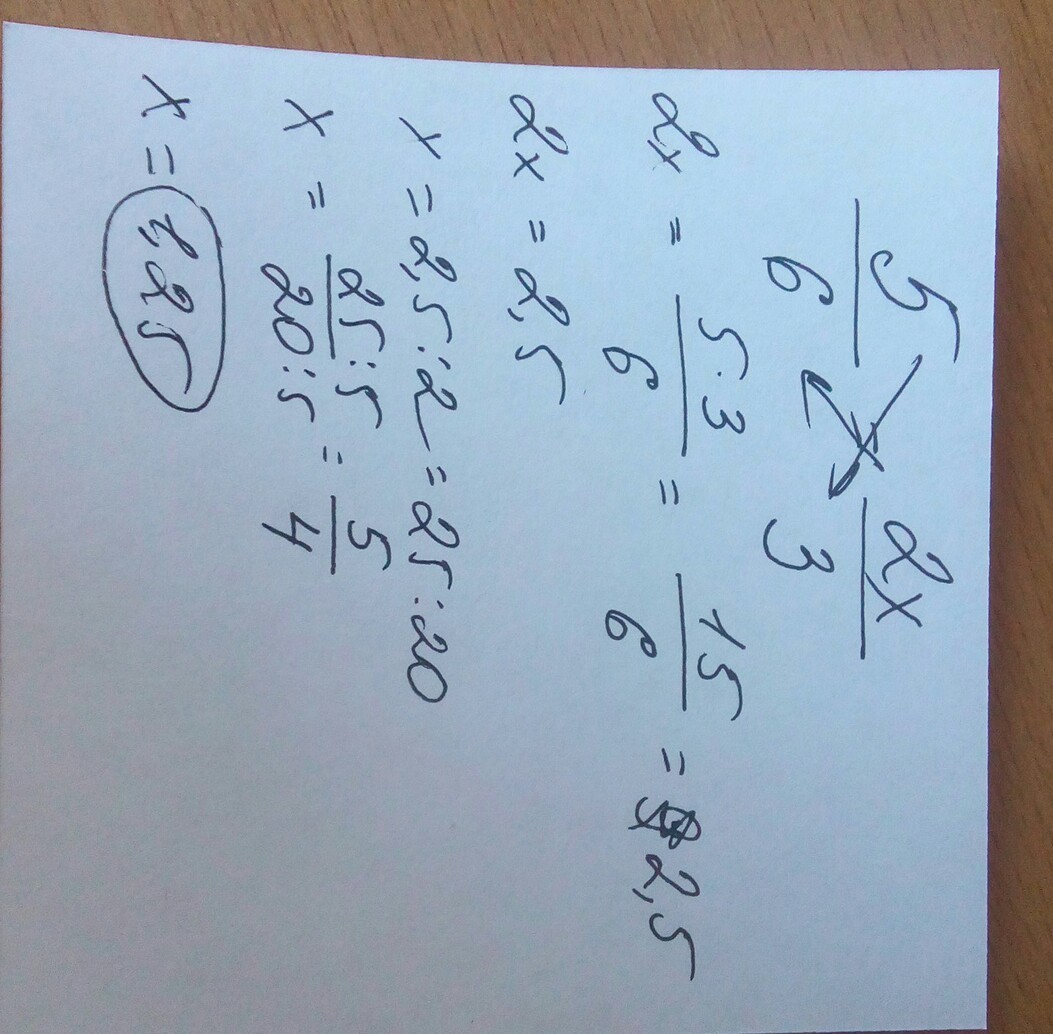 5/6 2x/3
2x = 5·3/6 = 15/6 = 2,5
2x = 2,5
x = 2,5:2 = 25:20
x = 25:5/20:5 = 5/4
x = 1,25